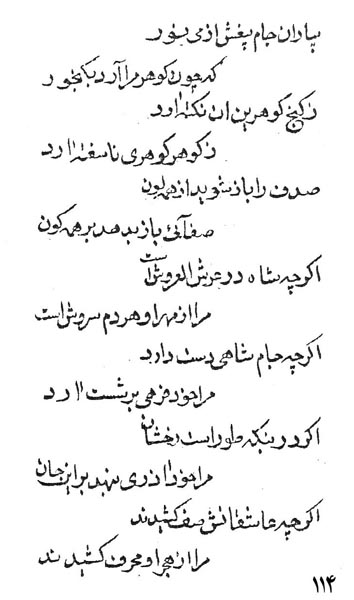 بیا دان جام بغش از می بنور
که چون گوهر مرا آرد بکنجور
ز کنج گوهرین ان نکته آرد
ز گوهر گوهری ناسفته آرد
صدف را باز شوید از همه لون
صفائی باز بدهد بر همه کون
اگرچه شاه در عرش العروش است
مرا از مهر او هر دم سروش است
اگرچه جام شاهی دست دارد
مرا خود در همی برشست آرد
اگر در بنکه طور است رخشان
مرا خود آذری بنهد بر این جان
اگرچه عاشقانش صف کشیدند
مرا از هجر او محرف کشیدند
۱۱۴